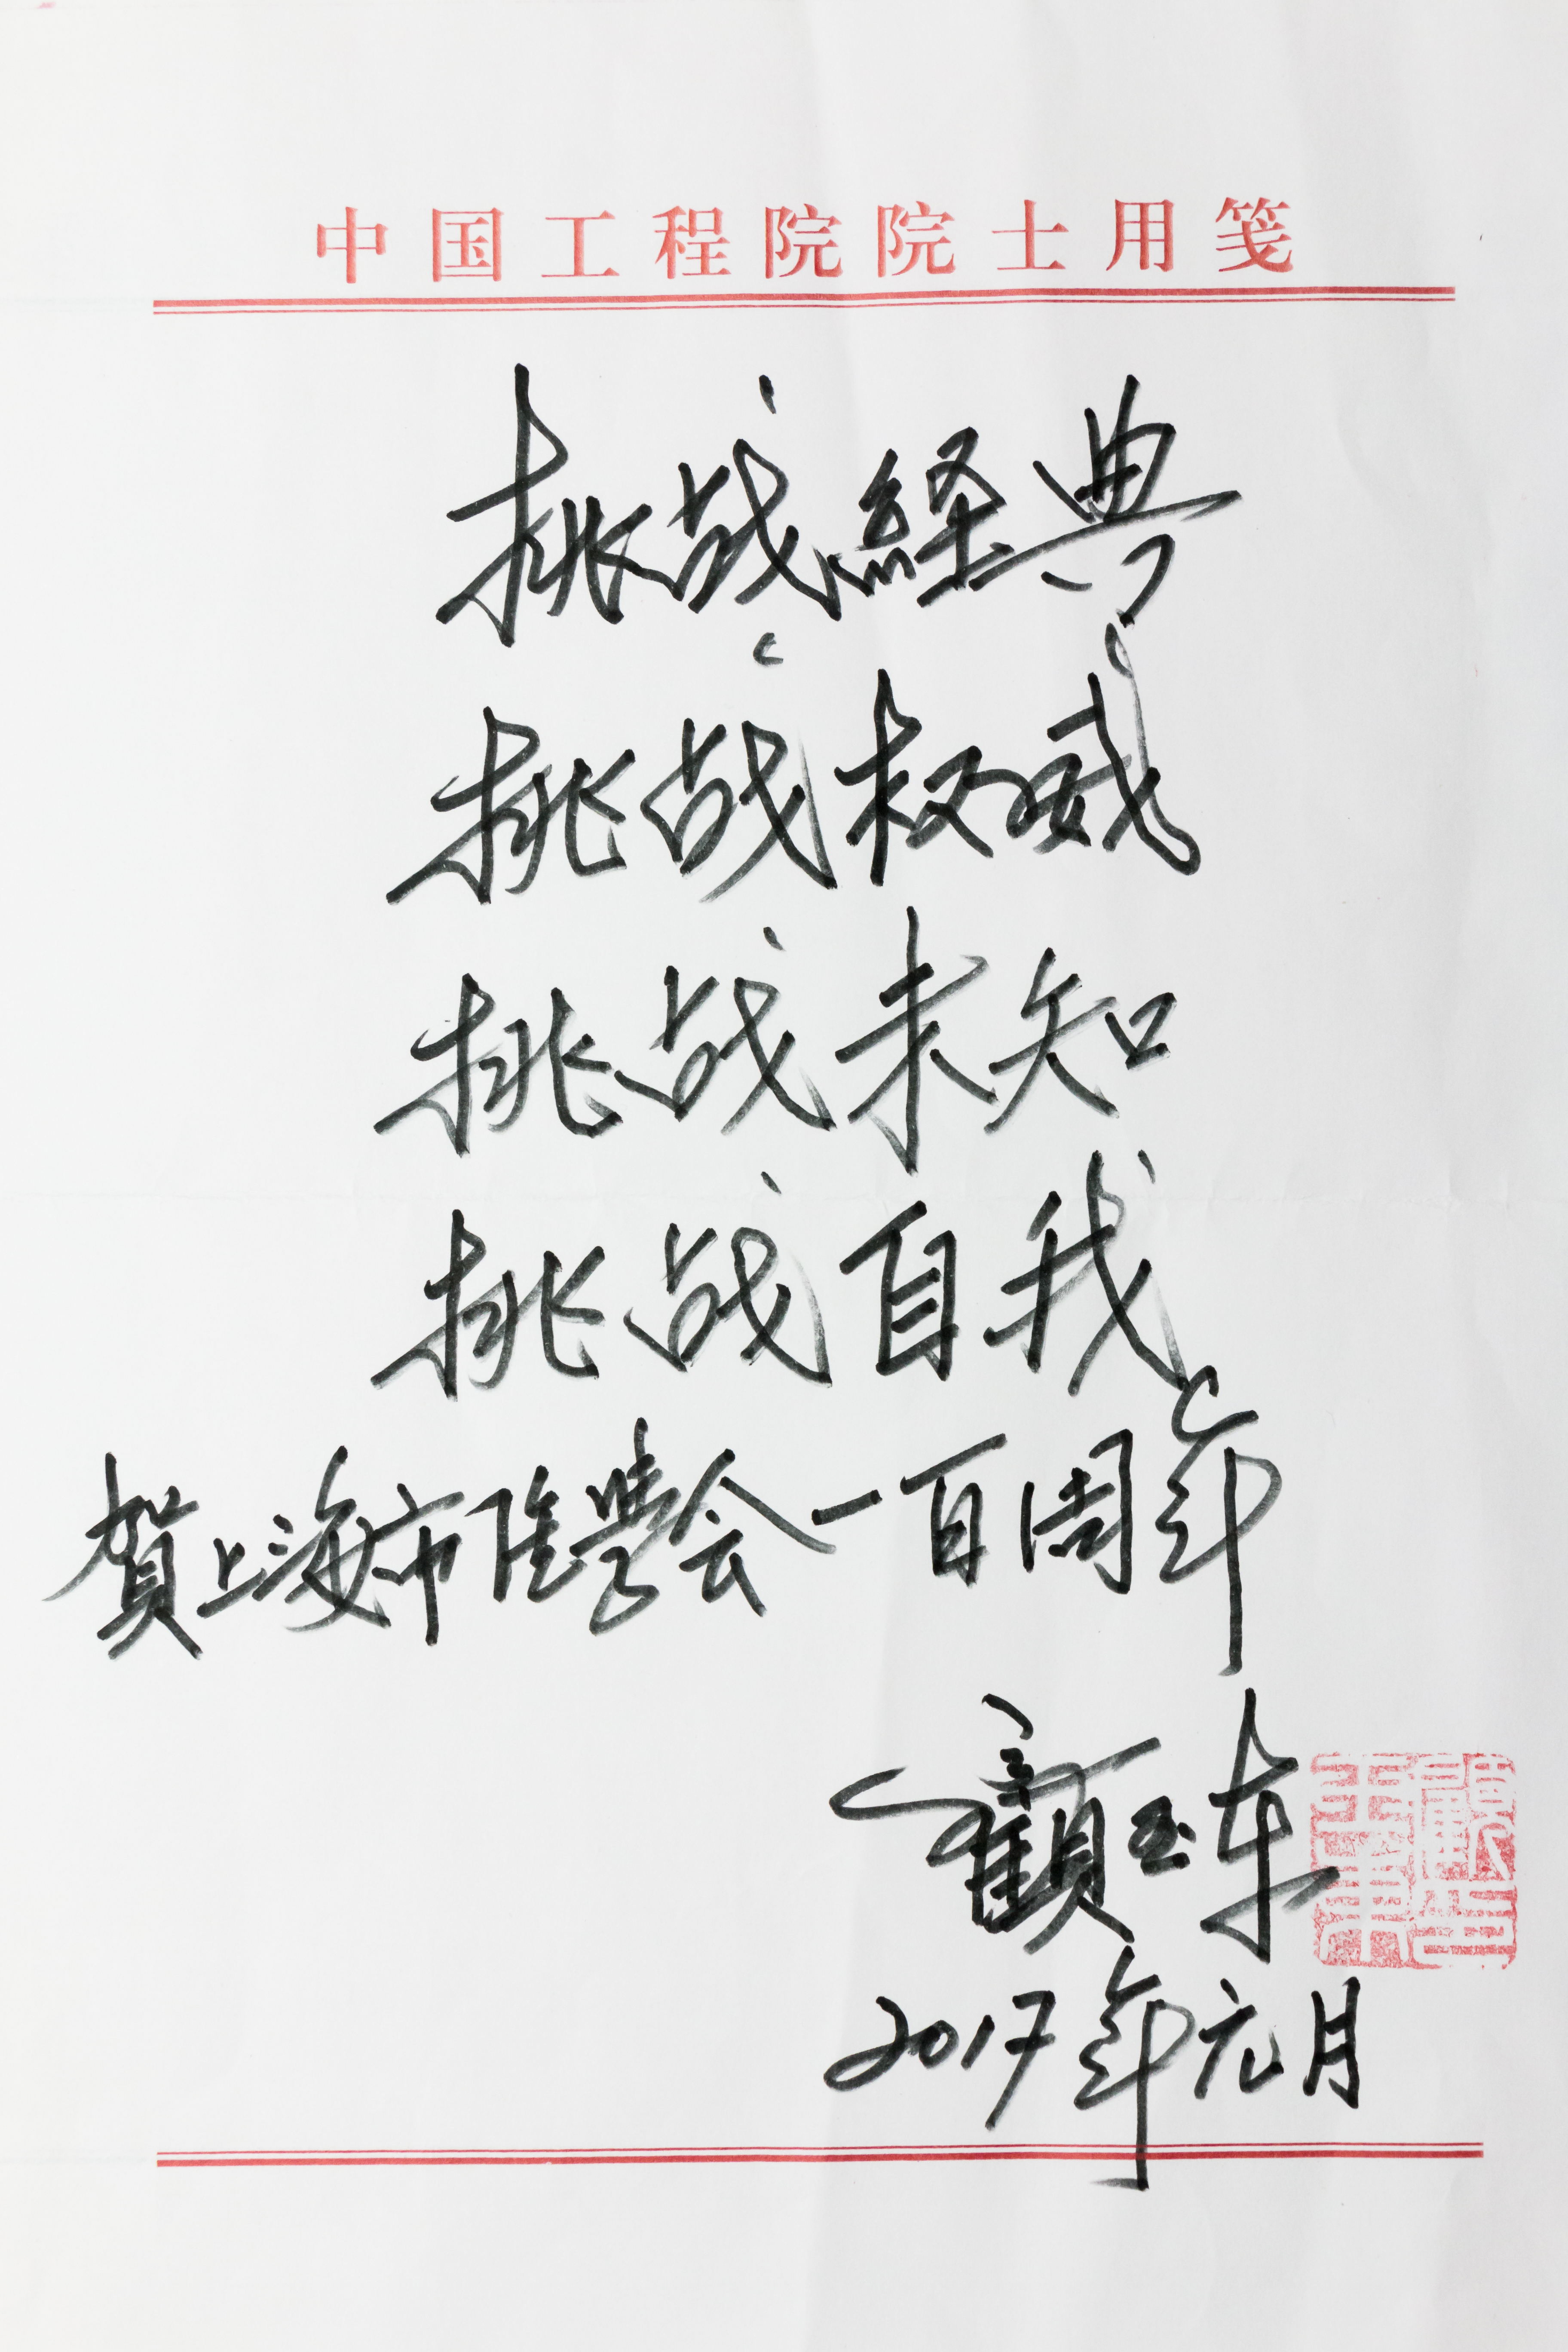 中国工程院院士用笺
挑战經典
挑战权威
挑战未知
挑战自我
賀上海市医學会一百周年
顧玉东
2017年元月